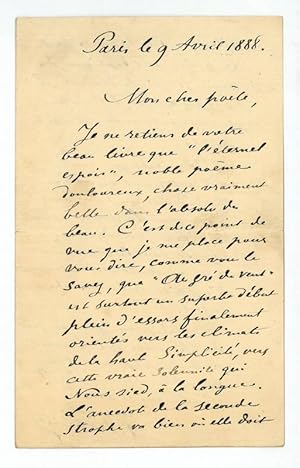 Paris le 9 Avril 1888.
Mon cher poète,
Je ne retiens de votre
beau livre que "l'éternel
espoir", noble poème
douloureux, chose vraiment
belle dans l'absolu du
beau. C'est de ce point de
vue que je me place pour
vous dire, comme vous le
savez, que "Au gré du vent"
est surtout un superbe début
plein d'essors finalement
orientés vers les climats
de la haute Simplicité, vers
cette vraie Solennité qui
Nous sied, à la longue.
L'anecdote de la seconde
strophe va bien où elle doit